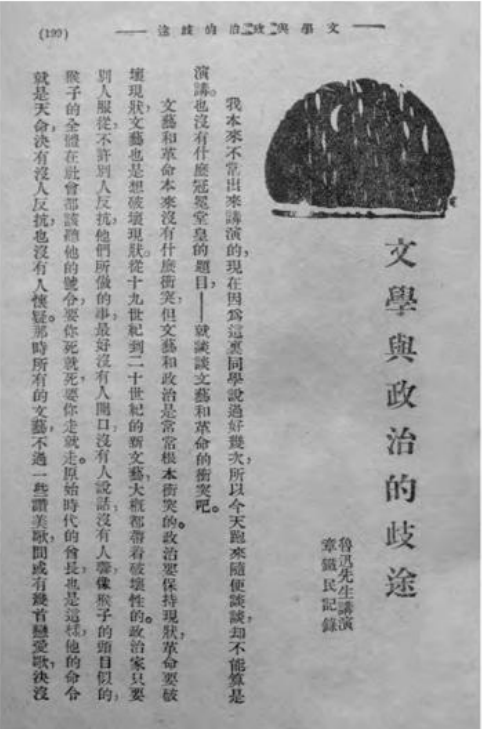 文學與政治的歧途
(199)
文學與政治的歧途
魯迅先生講演
章鐵民記錄
我本來不常出來講演的，現在因爲這裏同學說過好幾次，所以今天跑來隨便談談，却不能算是
演講。也沒有什麼冠冕堂皇的題目，——就談談文藝和革命的衝突吧。
文藝和革命本來沒有什麼衝突，但文藝和政治是常常根本衝突的。政治要保持現狀，革命要破
壞現狀，文藝也是想破壞現狀。從十九世紀到二十世紀的新文藝，大概都帶着破壞性的。政治家只要
別人服從，不許別人反抗，他們所做的事，最好沒有人開口，沒有人說話，沒有人響，像猴子的頭目似的，
猴子的全體在社會都該聽他的號令，要你死就死，要你走就走。原始時代的酋長也是這樣，他的命令
就是天命，決有沒人反抗，也沒有人懷疑。那時所有的文藝，不過一些讚美歌，間或有幾首戀愛歌，決沒